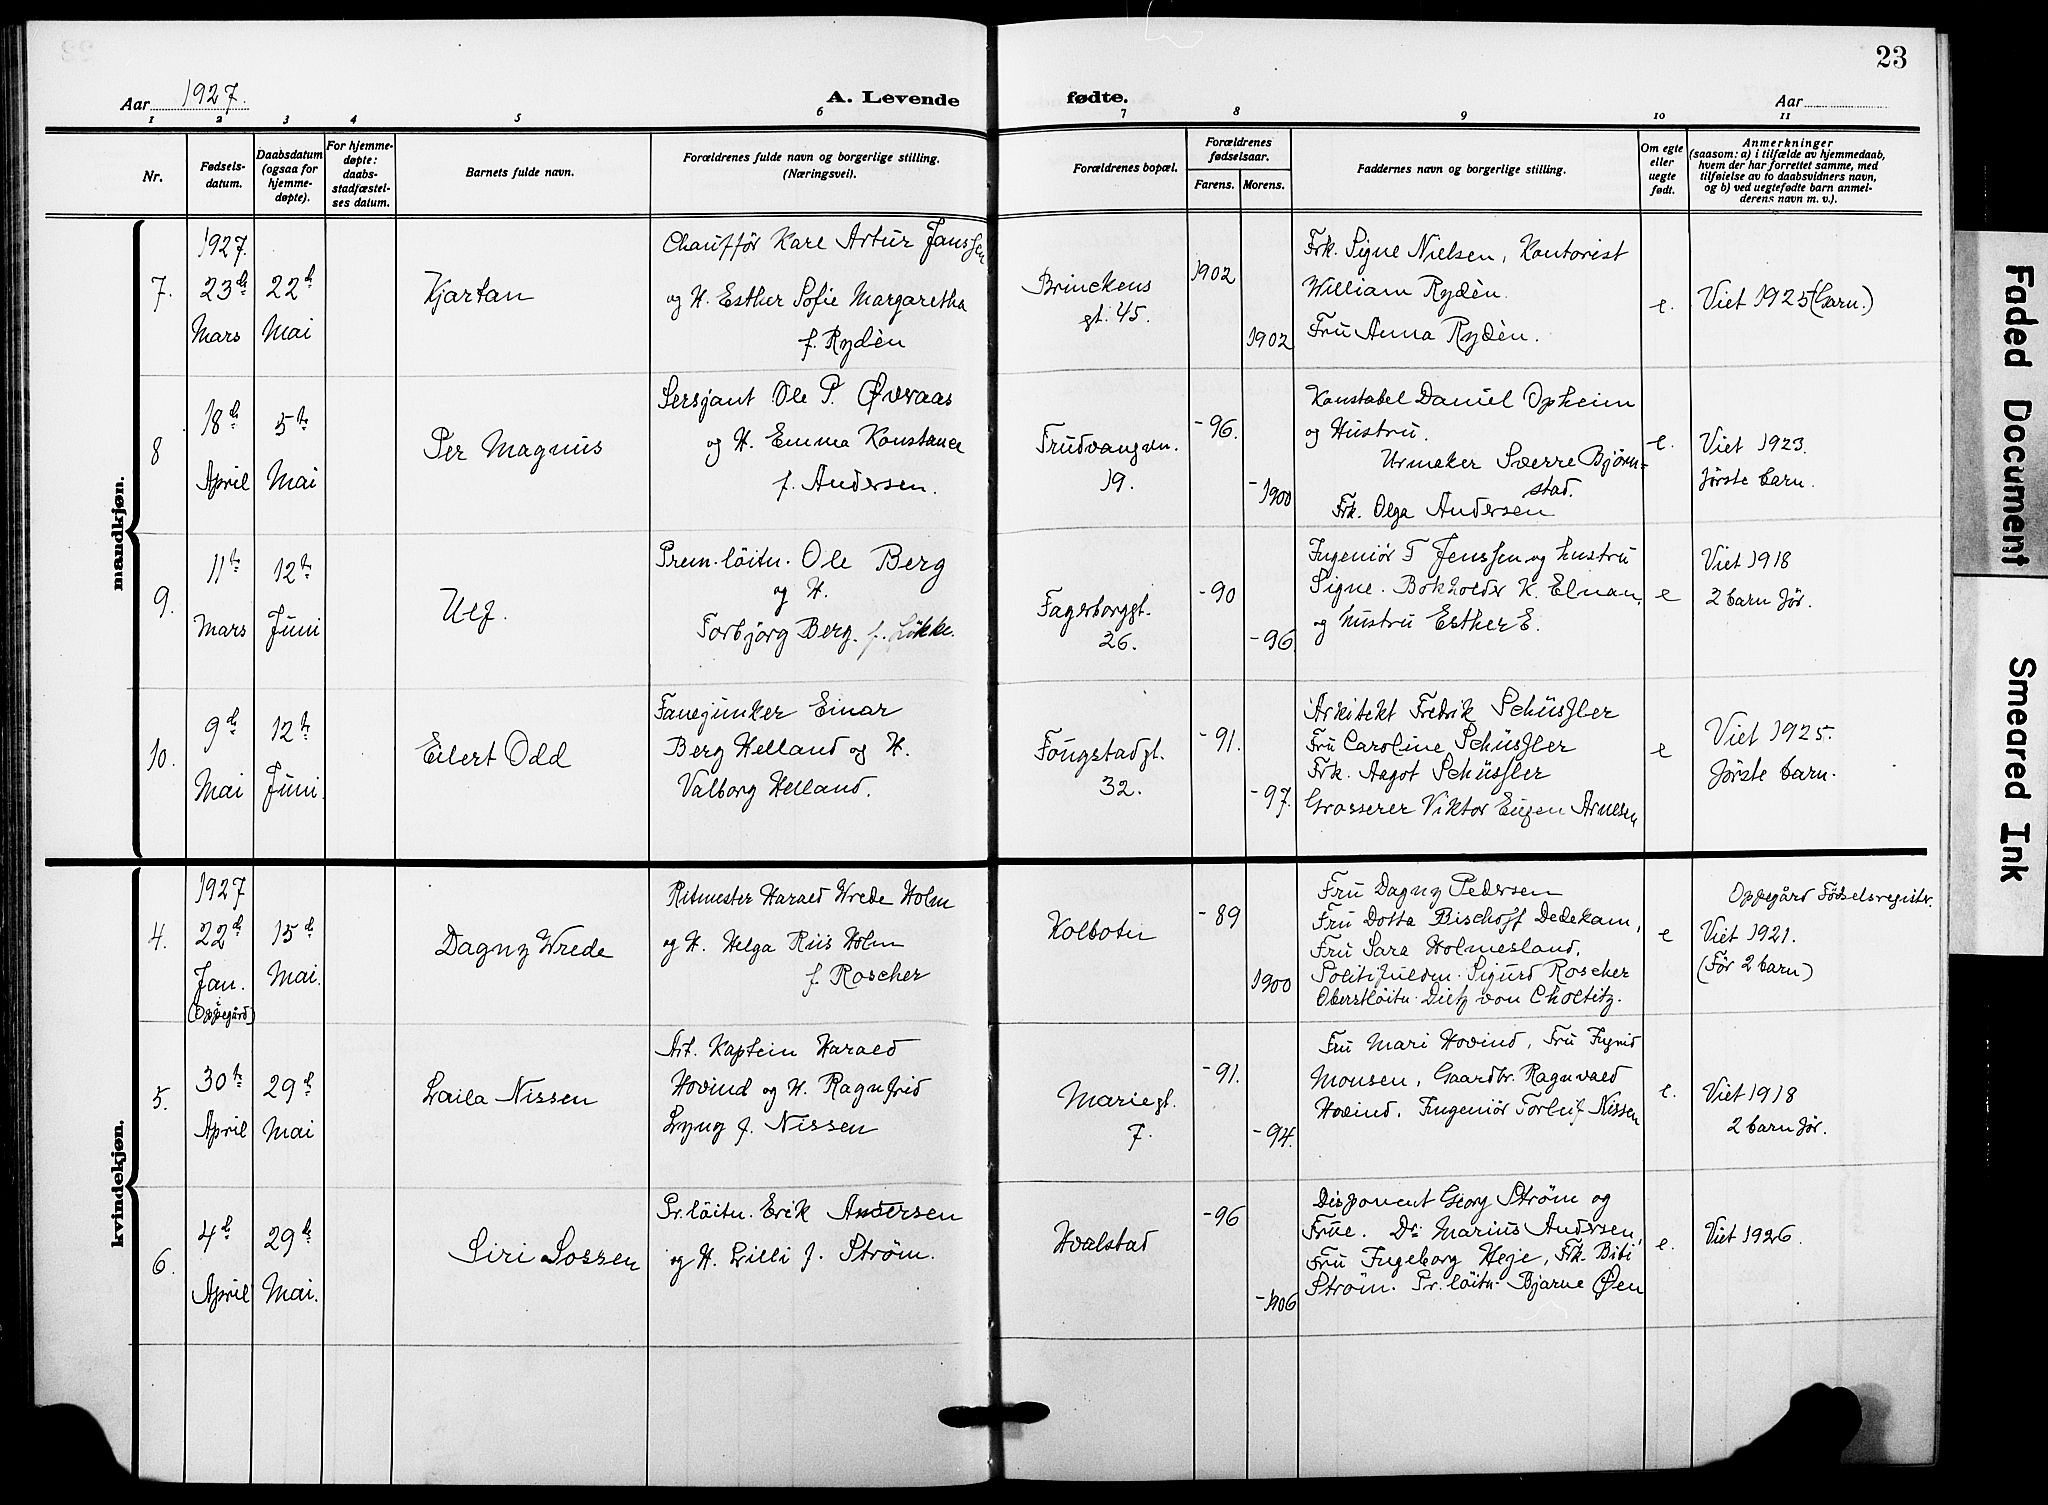 23
Aar 1927.
A. Levende fødte.
Aar
1 2 3 4 5 6 7 8 9 10 11
Nr.
Fødsels-
datum.
Daabsdatum
(ogsaa for
hjemme-
døpte).
For hjemme-
døpte:
daabs-
stadfæstel-
ses datum.
Barnets fulde navn.
Forældrenes fulde navn og borgerlige stilling.
(Næringsvei).
Forældrenes bopæl.
Forældrenes
fødselsaar.
Farens. Morens.
Faddernes navn og borgerlige stilling.
Om egte
eller
uegte
født.
Anmerkninger
(saasom: a) i tilfælde av hjemmedaab,
hvem der har forrettet samme, med
tilføielse av to daabsvidners navn,
og b) ved uegtefødte barn anmel-
derens navn m. v.).
mandkjøn.
7.
1927.
23de
Mars
22de
Mai
Kjartan
Chaufför Karl Artur Janssen
og H. Esther Sofie Margaretha
f. Rydèn
Brinckens
gt. 45.
1902
1902
Frk. Signe Nielsen, Kontorist
William Rydèn.
Fru Anna Rydèn.
e.
Viet 1925 (barn.)
8
18de
April
5te
Mai
Per Magnus
Sersjant Ole P. Øveraas
og H. Emma Konstance
f. Andersen.
Trudvangvn.
19.
-96.
-1900
Konstabel Daniel Opheim
og Hustru.
Urmaker Sverre Bjørn-
stad.
Frk. Olga Andersen
e.
Viet 1923.
første barn.
9.
11te
Mars
12te
Juni
Ulf.
Prem.löitn. Ole Berg
og H.
Torbjörg Berg. f. Lökke.
Fagerborggt.
26.
-90
-96.
Ingeniör T Jenssen og hustru
Signe. Bokholder K. Elnan,
og hustru Esther E.
e
Viet 1918
2 barn før.
10.
9de
Mai
12te
Juni.
Eilert Odd
Fanejunker Einar
Berg Helland og H.
Valborg Helland.
Tougstadgt.
32.
-91.
-97.
Arkitekt Fredrik Schüssler
Fru Caroline Schüssler
Frk. Aagot Schüssler
Grosserer Viktor Eugen Arnesen
e
Viet 1925.
første barn.
kvindekjøn.
4.
1927
22de
Jan.
(Oppegård)
15de
Mai.
Dagny Wrede
Ritmester Harald Wrede Holm
og H. Helga Riis Holm
f. Roscher
Kolbotn
-89
1900
Fru Dagny Pedersen
Fru Dotta Bischoff Dedekam,
Fru Sara Holmesland,
Politifuldm. Sigurd Roscher
Oberstlöitn. Dietz von Choltitz.
e
Oppegård Födselsregister.
Viet 1921.
(Før 2 barn)
5.
30te
April
29de
Mai
Laila Nissen
Art. Kaptein Harald
Hovind og H. Ragnfrid
Lyng f. Nissen
Mariegt.
7.
-91.
-94.
Fru Mari Hovind, Fru Ingrid
Monsen, Gaardbr. Ragnvald
Hovind, Ingeniör Torleif Nissen
e.
Viet 1918
2 barn før.
6.
4de
April
29de
Mai.
Siri Sossen
Pr.löitn. Erik Andersen
og H. Lilli f. Ström.
Hvalstad
-96
-1906
Disponent Georg Ström og
Frue. Dr. Marius Andersen,
Fru Ingeborg Heje, Frk. Bibi
Ström. Pr. löitn. Bjarne Øen
e.
Viet 1926.
Faded Document
Smeared Ink